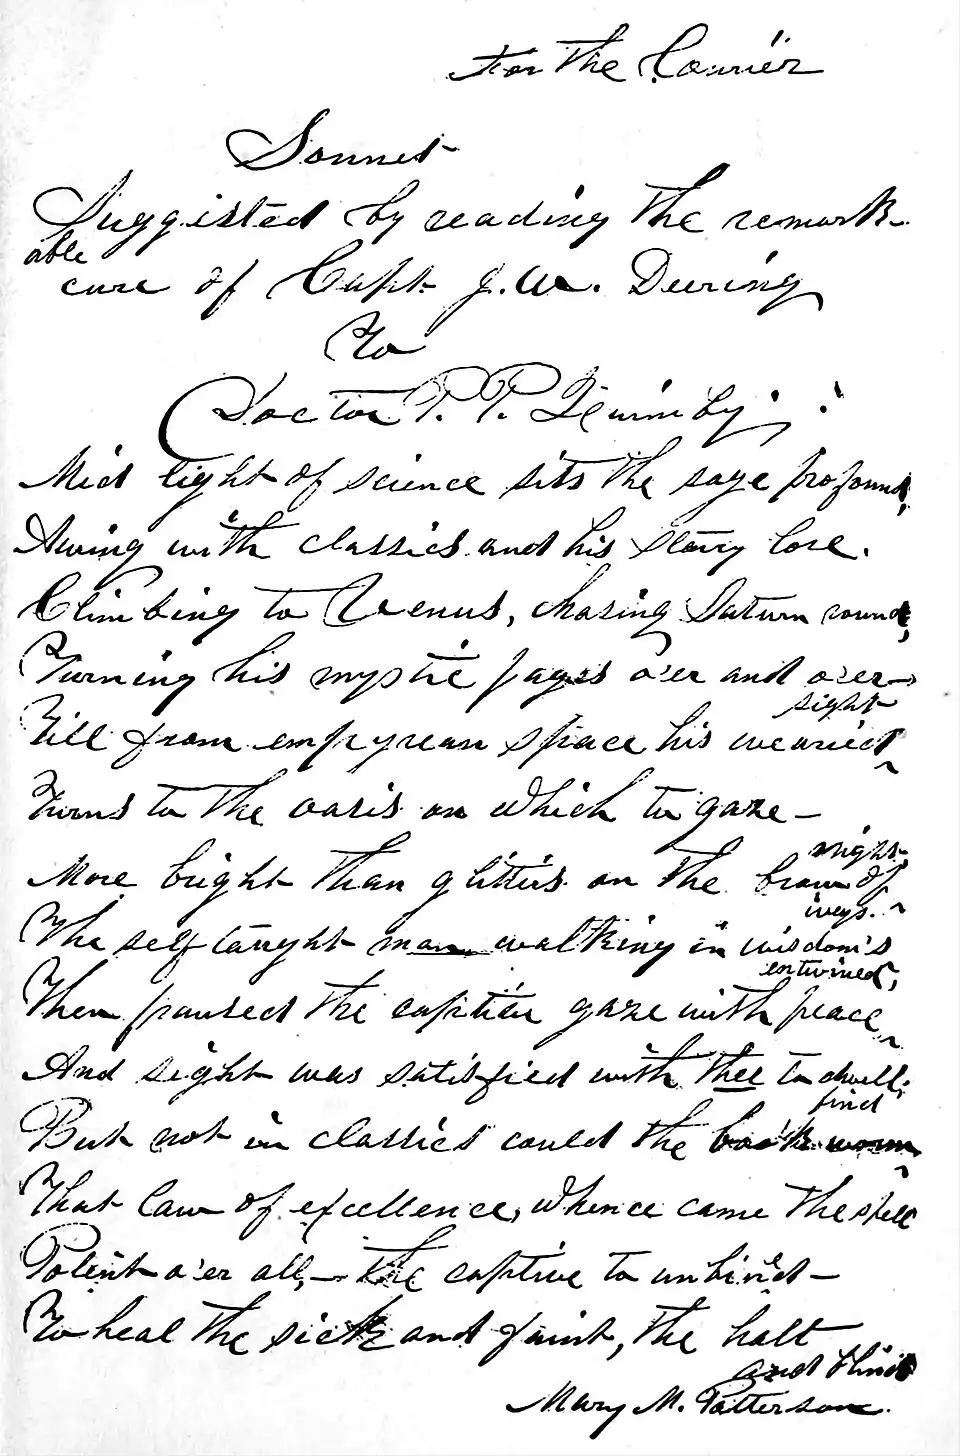 For the Courier
Sonnet
Suggested by reading the remark-
able
cure of Capt. J. W. Deering
To
Doctor P. P. Quimby.
Mid light of science sits the sage profound,
Awing with classics and his starry lore.
Climbing to Venus, chasing Saturn round,
Turning his mystic pages o'er and o'er—
Till from empyrean space his wearied sight
Turns to the oasis on which to gaze—
More bright than glitters on the brow of night
The self taught man walking in wisdom's ways.
Then paused the captive gaze with peace entwined,
And sight was satisfied with thee to dwell;
But not in classics could the book-worm find
That law of excellence, whence came the spell
Potent o'er all,— the captive to unbind—
To heal the sick and faint, the halt
and blind
Mary M. Patterson.